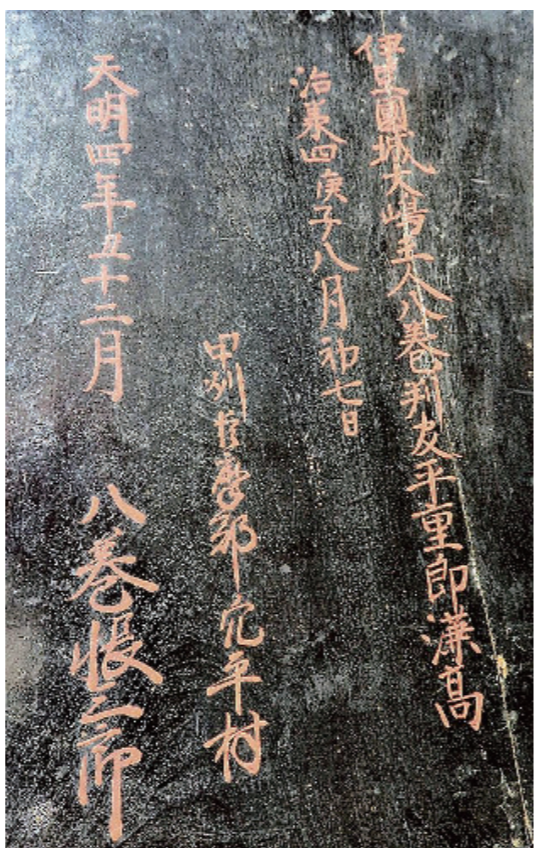 伊豆國城大嶋主八八巻判友平重郎藻高
治承四庚子八月初七日
甲州巨摩郡穴平村
天明四年五十二月
八巻帳三郎